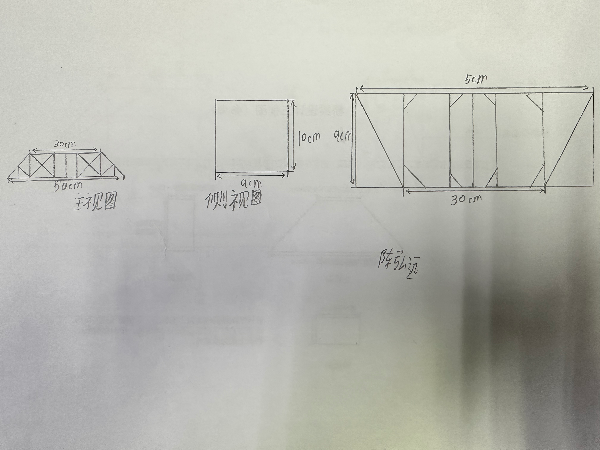 30cm
50cm
主视图
10cm
9cm
侧视图
5cm
9cm
30cm